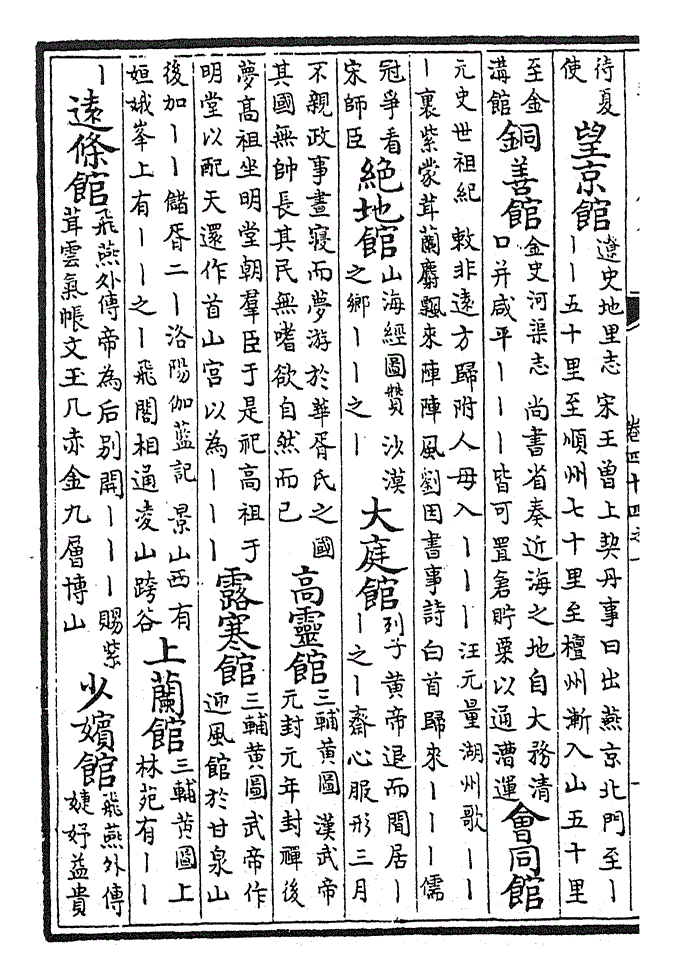 待夏
使
望京館
遼史地里志 宋王曾上契丹事曰出燕京北門至丨
丨丨五十里至順州七十里至檀州漸入山五十里
至金
溝館
銅善館
金史河渠志 尚書省奏近海之地自大務清
口并咸平丨丨丨皆可置倉貯粟以通漕運
會同館
元史世祖紀 敕非遠方歸附人毋入丨丨丨 汪元量湖州歌丨丨
丨裏紫蒙茸蘭麝飄來陣陣風劉因書事詩白首歸來丨丨丨儒
冠爭看
宋師臣
絕地館
山海經圖贊 沙漠
之鄉丨丨之丨
大庭館
列子黃帝退而閒居丨
丨之丨齋心服形三月
不親政事晝寢而夢游於華胥氏之國
其國無帥長其民無嗜欲自然而已
高靈館
三輔黃圖 漢武帝
元封元年封禪後
夢高祖坐明堂朝羣臣于是祀高祖于
明堂以配天還作首山宮以為丨丨丨
露寒館
三輔黃圖武帝作
迎風館於甘泉山
後加丨丨儲胥二丨 洛陽伽藍記 景山西有
姮娥峯上有丨丨之丨飛閣相通凌山跨谷
上蘭館
三輔黃圖上
林苑有丨丨
丨
遠條館
飛燕外傳帝為后別開丨丨丨賜紫
茸雲氣帳文玉几赤金九層博山
少嬪館
飛燕外傳
婕妤益貴
卷四十四之一